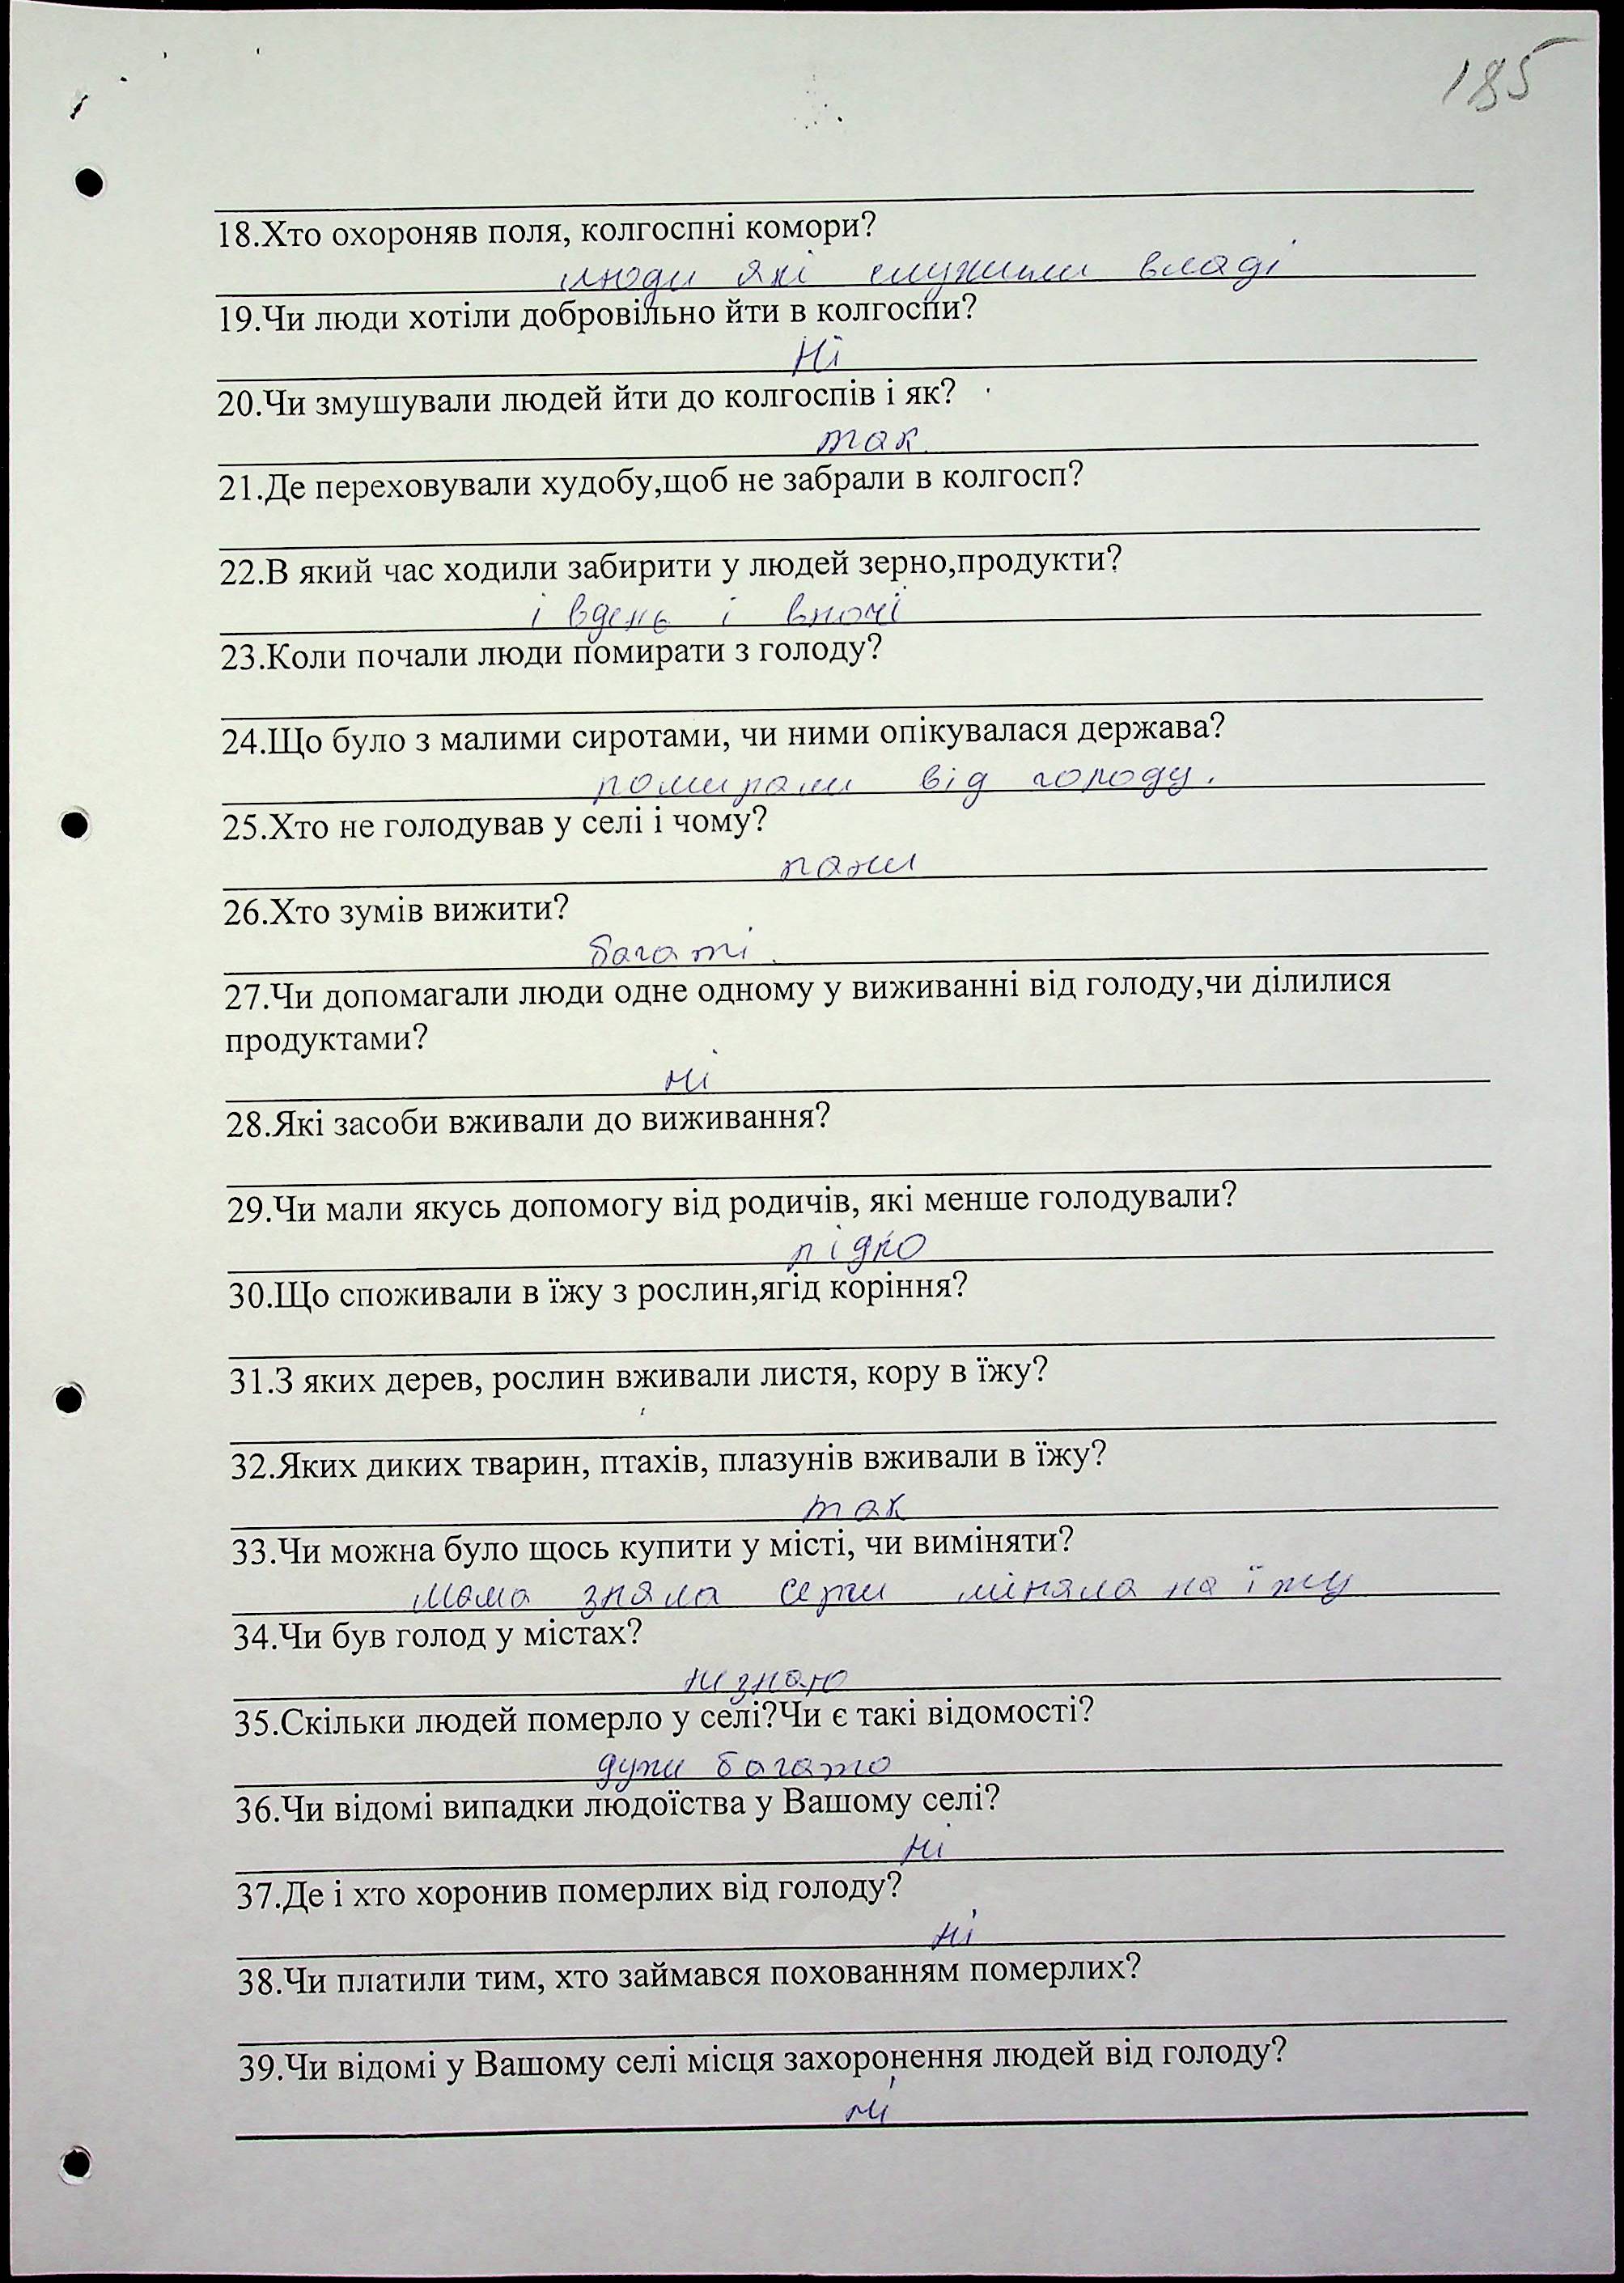 185
18.Хто охороняв поля, колгоспні комори?
люди які служили владі
19.Чи люди хотіли добровільно йти в колгоспи?
Ні
20.Чи змушували людей йти до колгоспів і як?
так.
21.Де переховували худобу,щоб не забрали в колгосп?
22.В який час ходили забирити у людей зерно,продукти?
і вдень і вночі
23.Коли почали люди помирати з голоду?
24.Що було з малими сиротами, чи ними опікувалася держава?
помирали від голоду.
25.Хто не голодував у селі і чому?
пани
26.Хто зумів вижити?
багаті.
27.Чи допомагали люди одне одному у виживанні від голоду,чи ділилися
продуктами?
ні
28.Які засоби вживали до виживання?
29.Чи мали якусь допомогу від родичів, які менше голодували?
рідко
30.Що споживали в їжу з рослин,ягід коріння?
31.З яких дерев, рослин вживали листя, кору в їжу?
32.Яких диких тварин, птахів, плазунів вживали в їжу?
так
33.Чи можна було щось купити у місті, чи виміняти?
Мама зняла серги міняла на їжу
34.Чи був голод у містах?
незнаю
35.Скільки людей померло у селі?Чи є такі відомості?
дуже багато
36.Чи відомі випадки людоїства у Вашому селі?
ні
37.Де і хто хоронив померлих від голоду?
ні
38.Чи платили тим, хто займався похованням померлих?
39.Чи відомі у Вашому селі місця захоронення людей від голоду?
ні